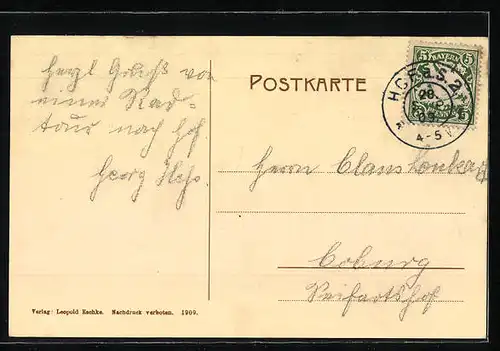 Herzl Gruß von
einer Rad-
tour nach Hof.
Georg Heß.
POSTKARTE
5 BAYERN 5
HOF S. 2
28.
09
4-5
Herrn Claus
Coburg
Seifartshof
Verlag: Leopold Eschke. Nachdruck verboten. 1909.